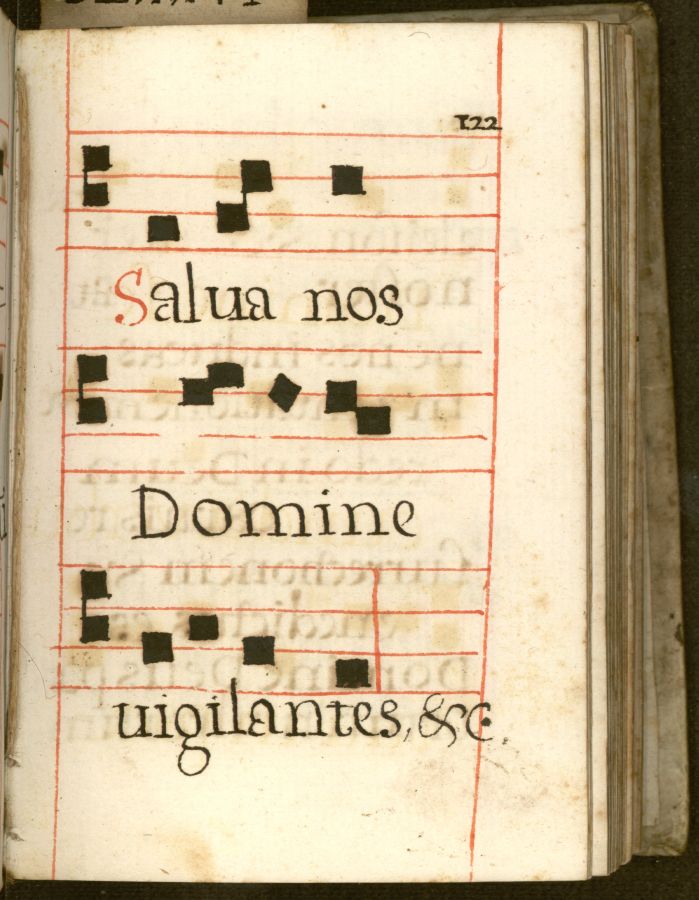 122
Salua nos
Domine
uigilantes, &c.